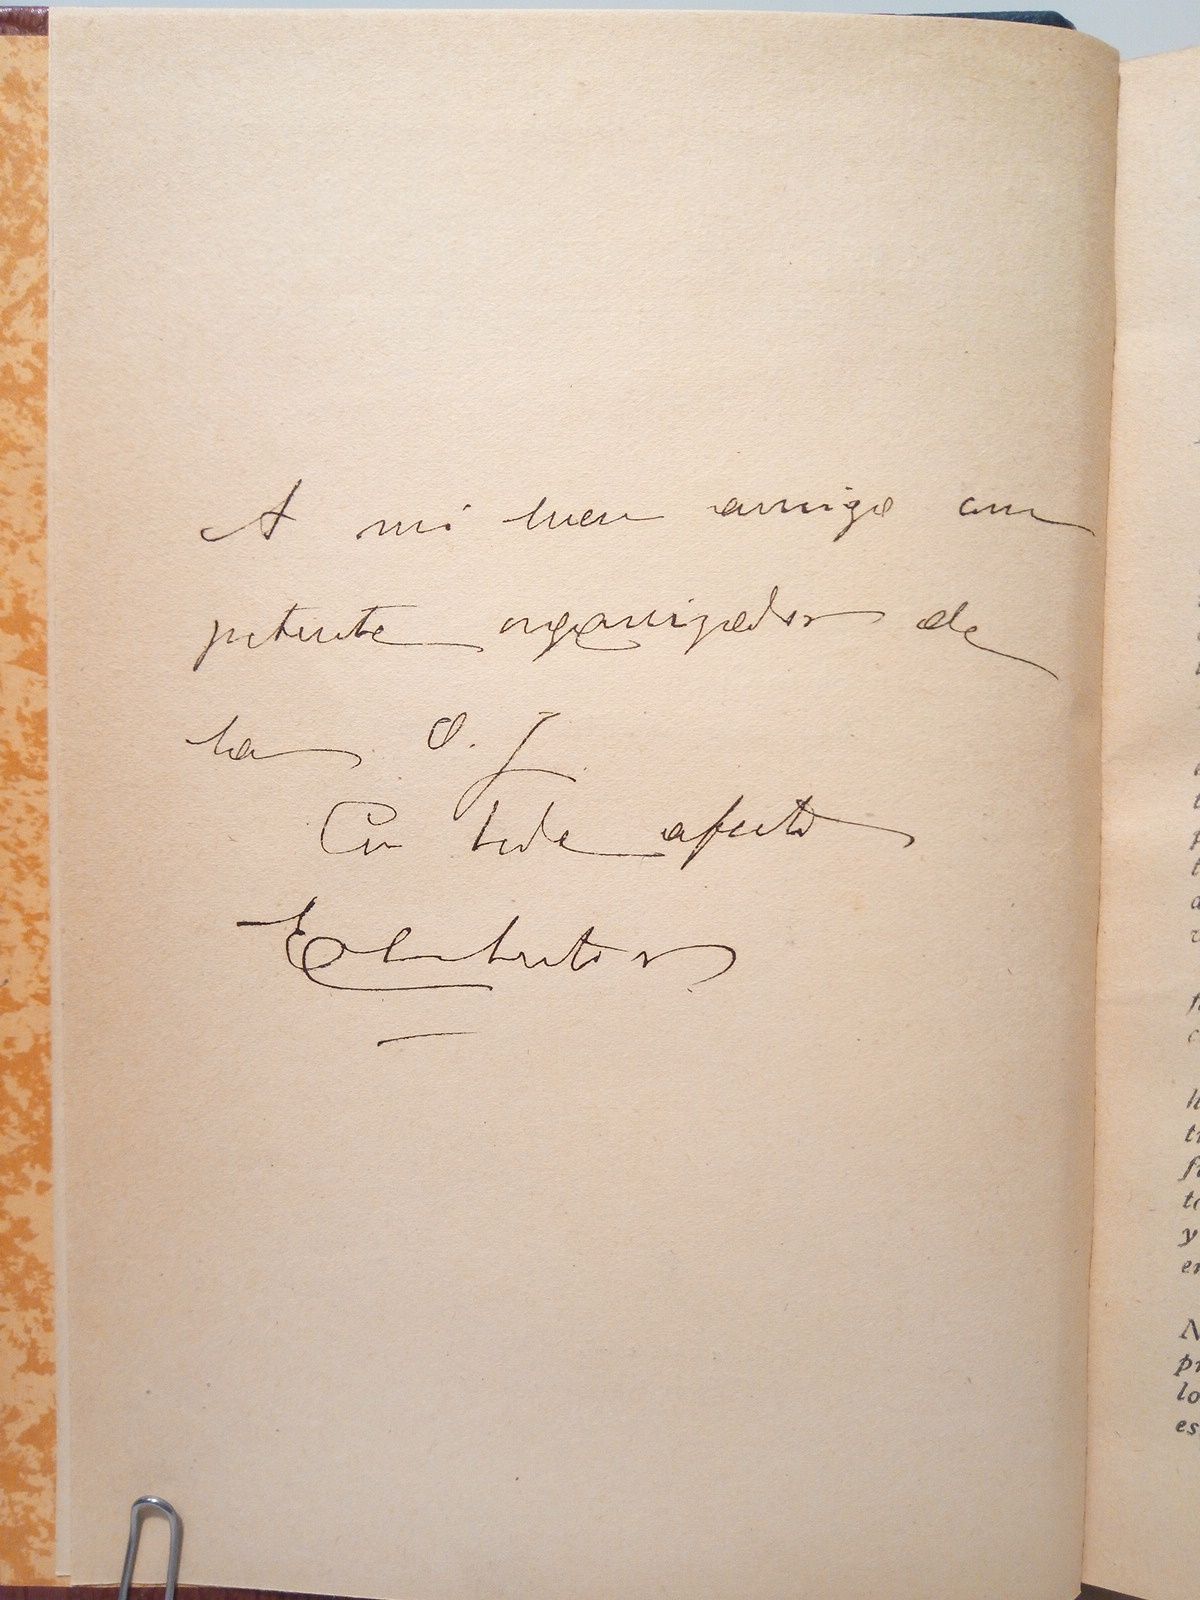 A mi buen amigo com
petente organizador de
la O. J.
Con todo afecto
El autor
fi
c
h
tr
fu
to
y
en
N
pr
lo
es